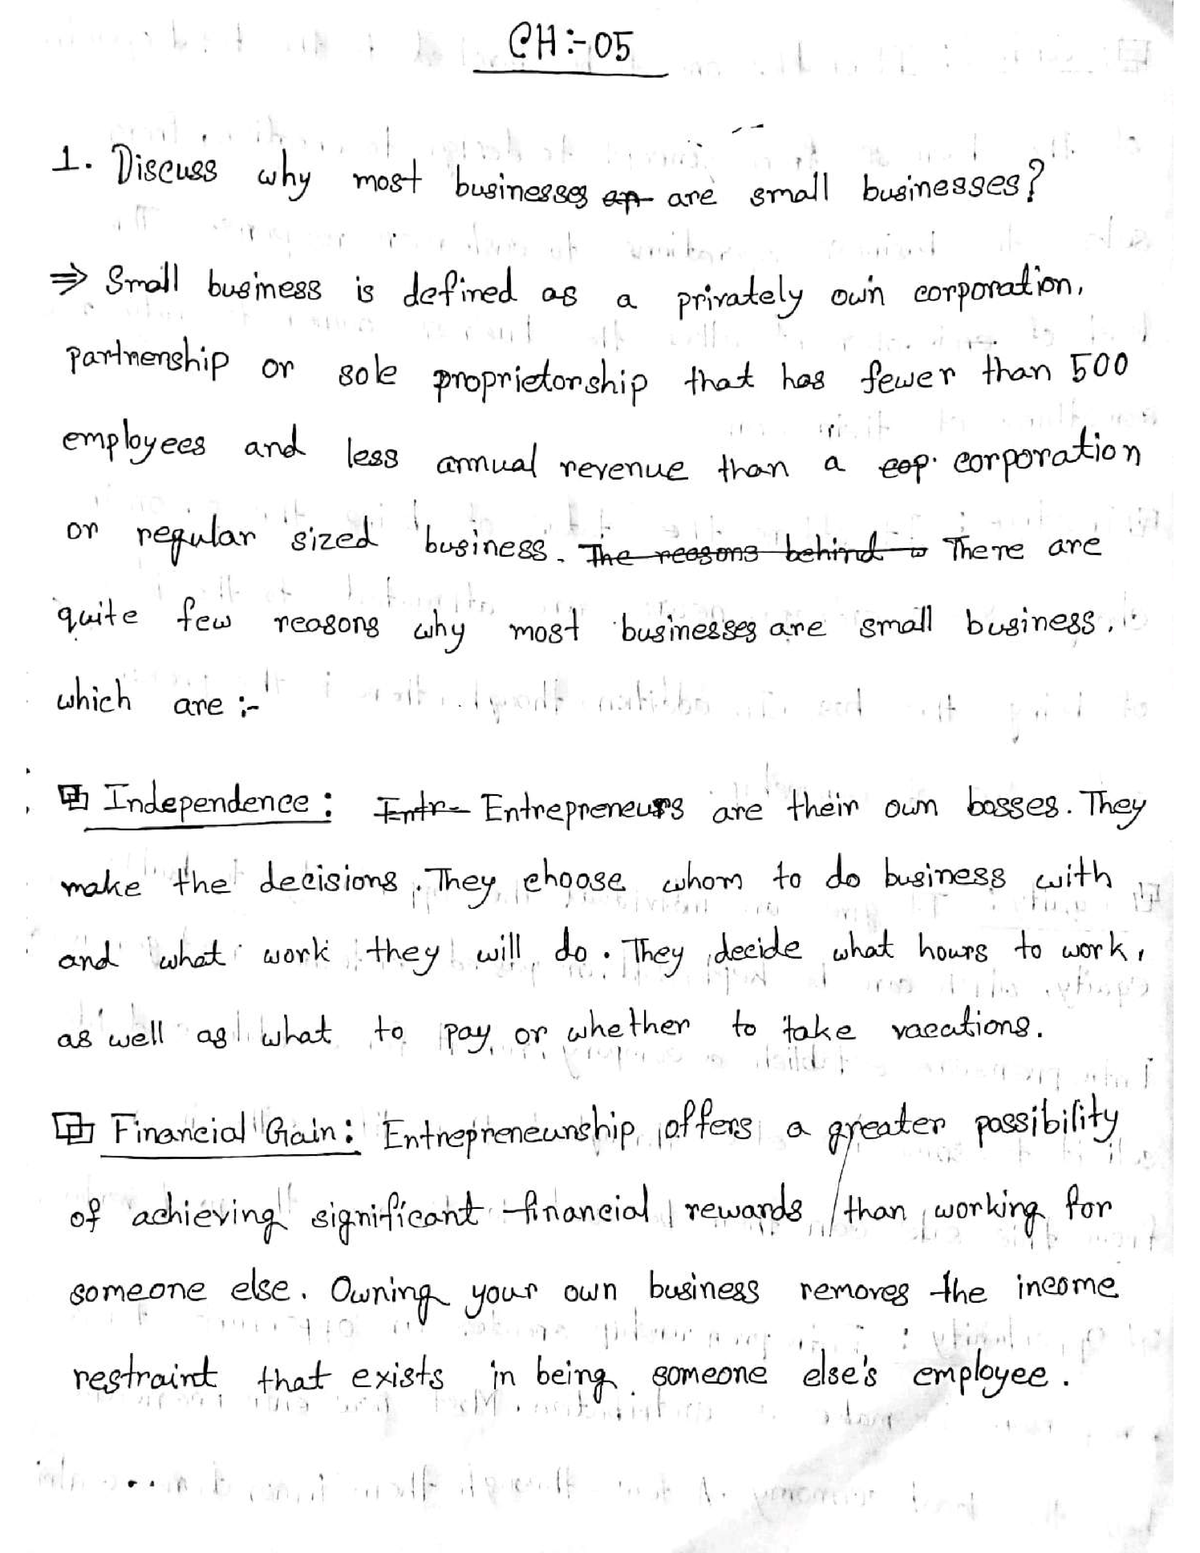 CH:-05
1. Discuss why most businesses ap are small businesses?
⇒ Small business is defined as a privately own corporation,
partnership or sole proprietorship that has fewer than 500
employees and less annual revenue than a cop. corporation
or regular sized business. The reasons behind is There are
quite few reasons why most businesses are small business.
which are :-
Independence: Entr- Entrepreneurs are their own bosses. They
make the decisions. They choose whom to do business with
and what work they will do. They decide what hours to work,
as well as what to pay or whether to take vacations.
Financial Gain: Entrepreneurship offers a greater possibility
of achieving significant financial rewards than working for
someone else. Owning your own business removes the income
restraint that exists in being someone else's employee.